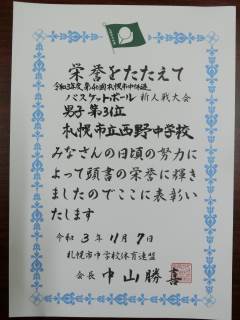 栄誉をたたえて
令和3年度 第40回札幌市中体連
バスケットボール 新人戦大会
男子 第3位
札幌市立西野中学校
みなさんの日頃の努力に
よって頭書の栄誉に輝き
ましたのでここに表彰い
たします
令和 3年 11月 7日
札幌市中学校体育連盟
会長 中山勝喜